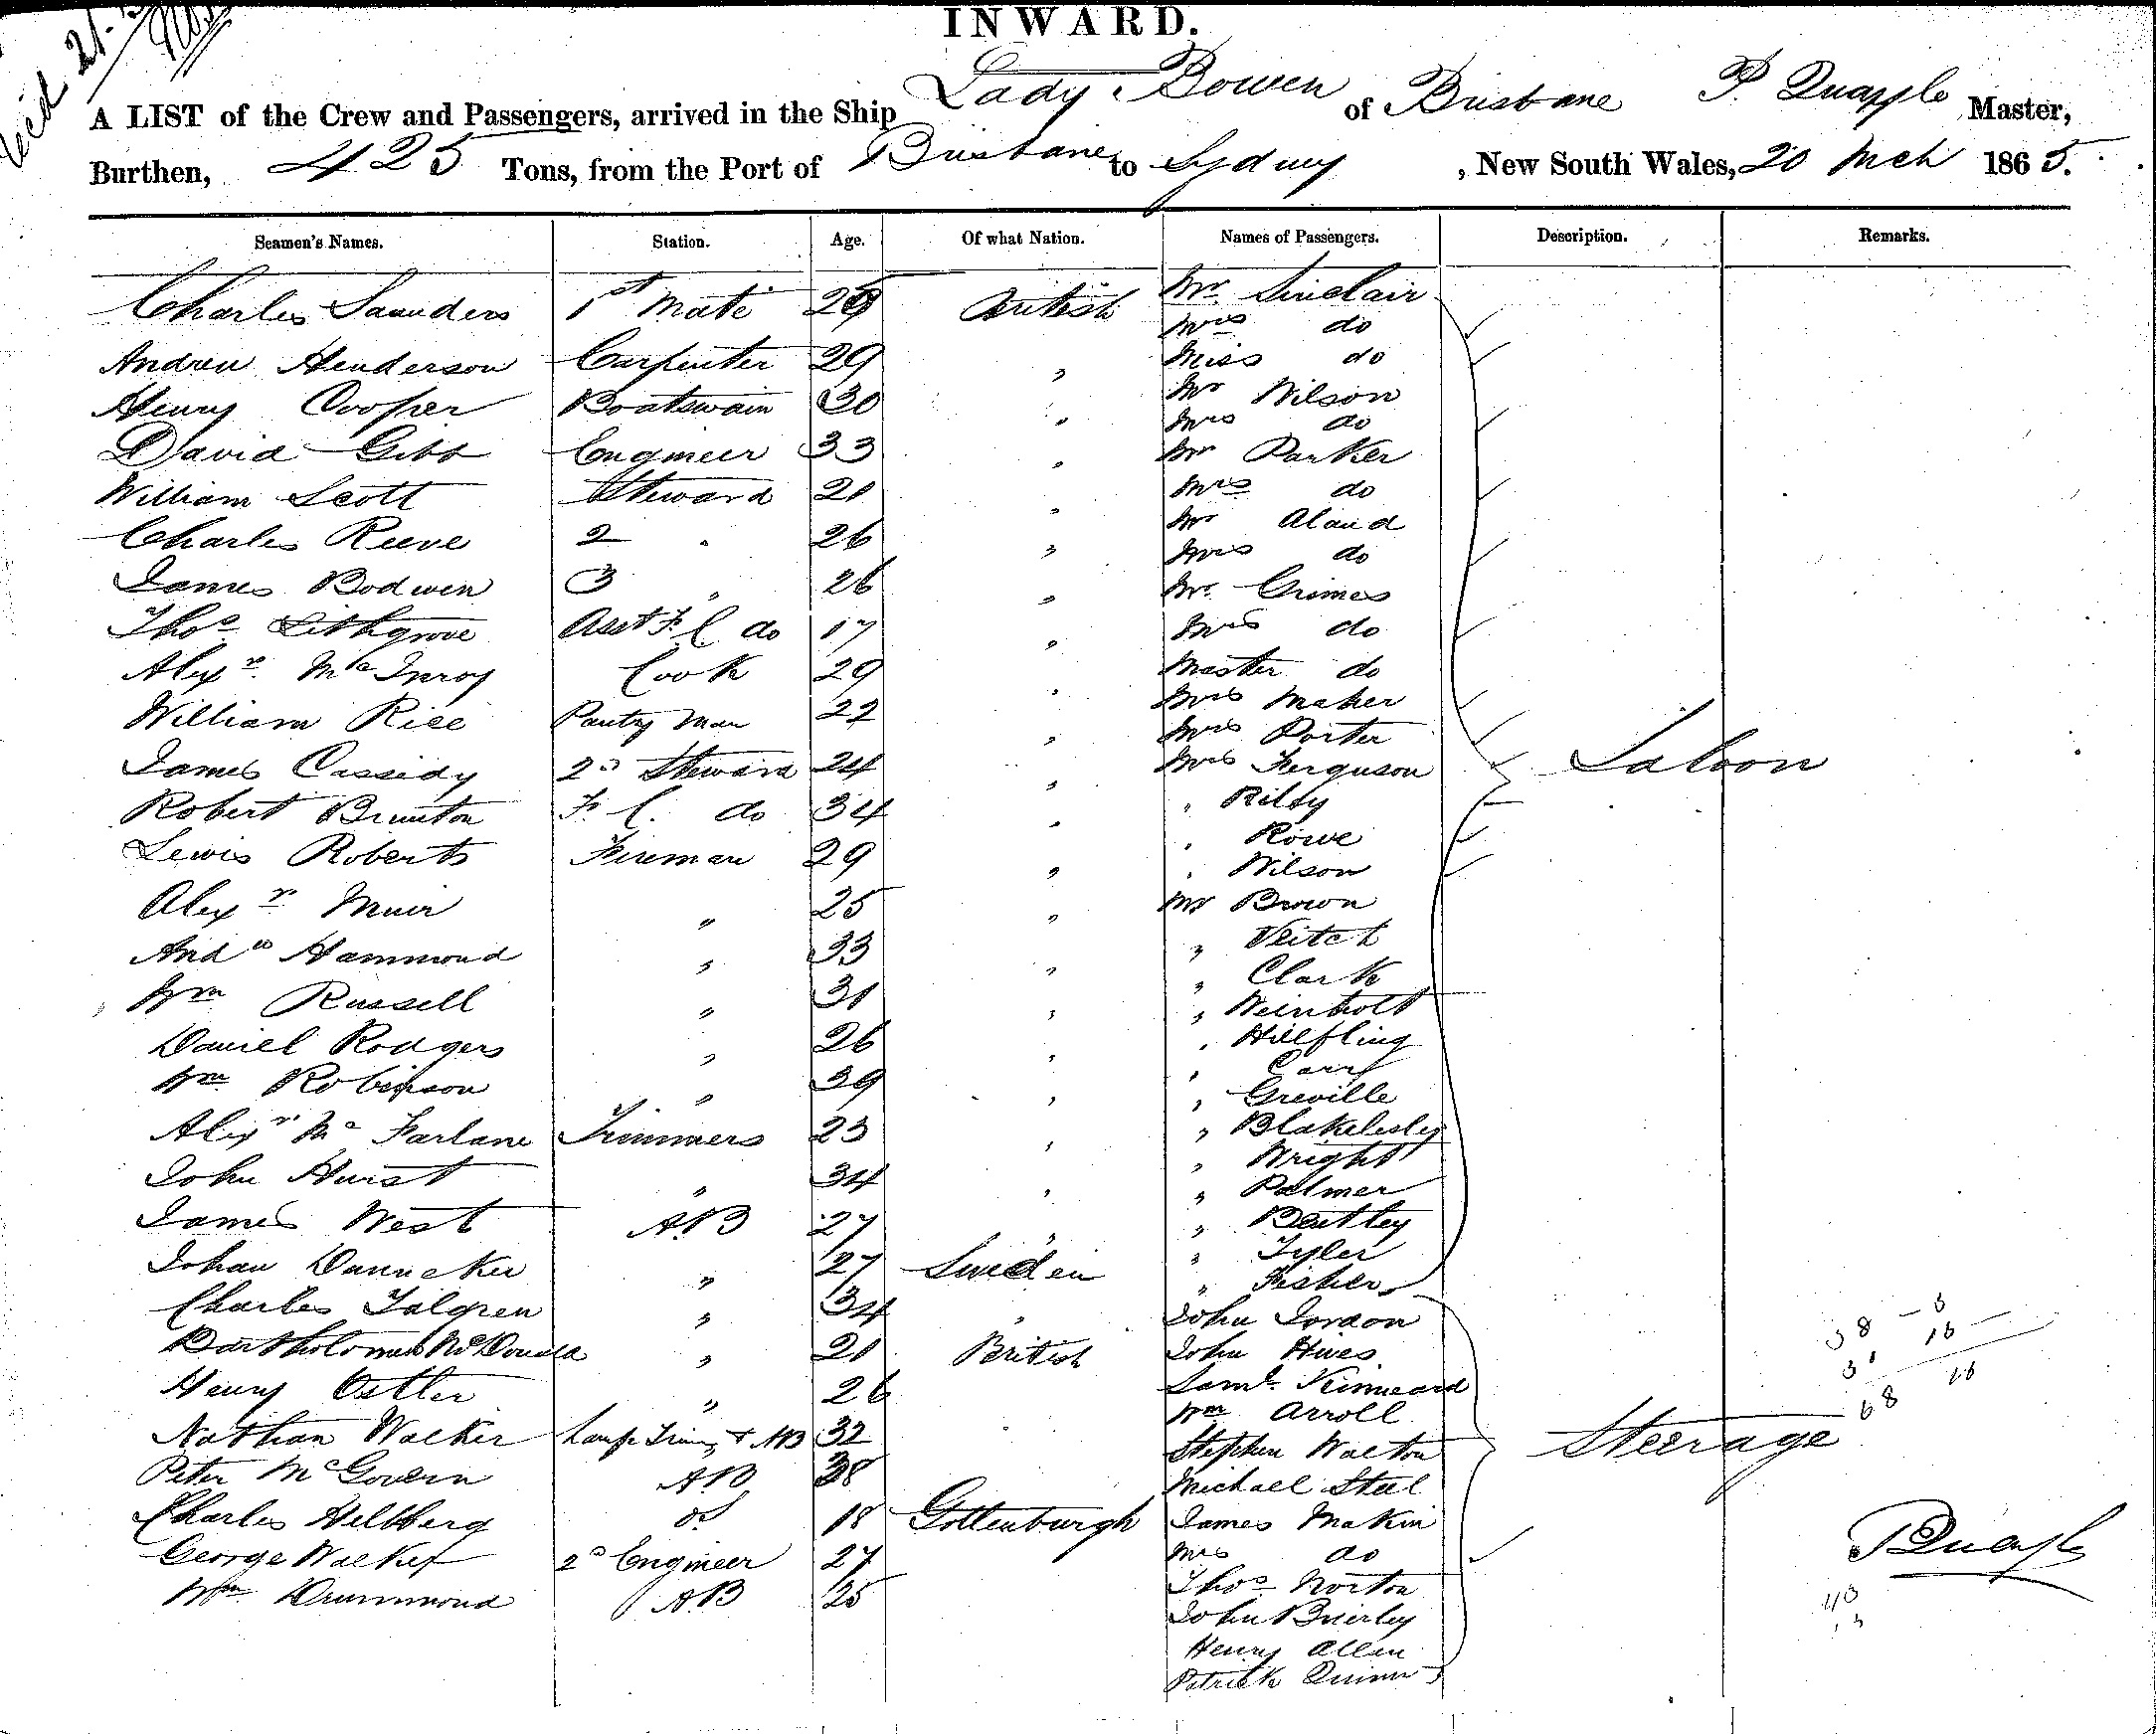 INWARD.
A LIST of the Crew and Passengers, arrived in the Ship Lady Bowen of Brisbane P. Quayle Master,
Burthen, 425 Tons, from the Port of Brisbane to Sydney, New South Wales, 20 Mch 1865.
Seamen's Names. Station. Age. Of what Nation. Names of Passengers. Description. Remarks.
Charles Saunders 1st Mate 29 British Mr Sinclair
Mrs do
Andrew Henderson Carpenter 29 " Miss do
Henry Cooper Boatswain 30 " Mr Wilson
Mrs do
David Gibb Engineer 33 " Mr Parker
William Scott Steward 21 " Mrs do
Mr Aland
Charles Reeve 2 " 26 " Mrs do
James Bodwen 3 " 26 " Mr Crimes
Thos Lithgrove Asst F. C do 17 " Mrs do
Alexr McInroy Cook 29 " Master do
Mrs Maher
William Rice Pantry Man 22 " Mrs Porter
James Cassidy 2d Steward 24 " Mrs Ferguson Saloon
Robert Brunton F. C. do 34 " " Rilty
" Rowe
Lewis Roberts Fireman 29 " " Wilson
Alexr Muir " 25 " Mr Brown
" Veitch
Andw Hammond " 33 " " Clark
Wm Russell " 31 " " Weinholt
Daniel Rodgers " 26 " " Hilfling
" Carr
Wm Robinson " 29 " " Greville
Alexr Mc Farlane Trimmers 23 " " Blakelesley
" Wright
John Hurst " 34 " " Palmer
James West A.B 27 " " Bentley
" Tyler
Johan Danneker " 27 Sweden " Fisher
Charles Talgren " 34 " John Jordon
Bartholomew McDonald " 21 British John Hives
Henry Ostler " 26 Saml Kinneard
Wm Arroll
Nathan Walker Lamp Trimr & AB 32 Stephen Walton Steerage
Peter McGovern AB 38 Michael Steel
Charles Hellberg do 18 Gottenburgh James Makin
George Walker 2d Engineer 27 Mrs do
Wm Drummond AB 25 Thos Norton
John Brierley
Henry Allen
Patrick Quinn
P Quayle